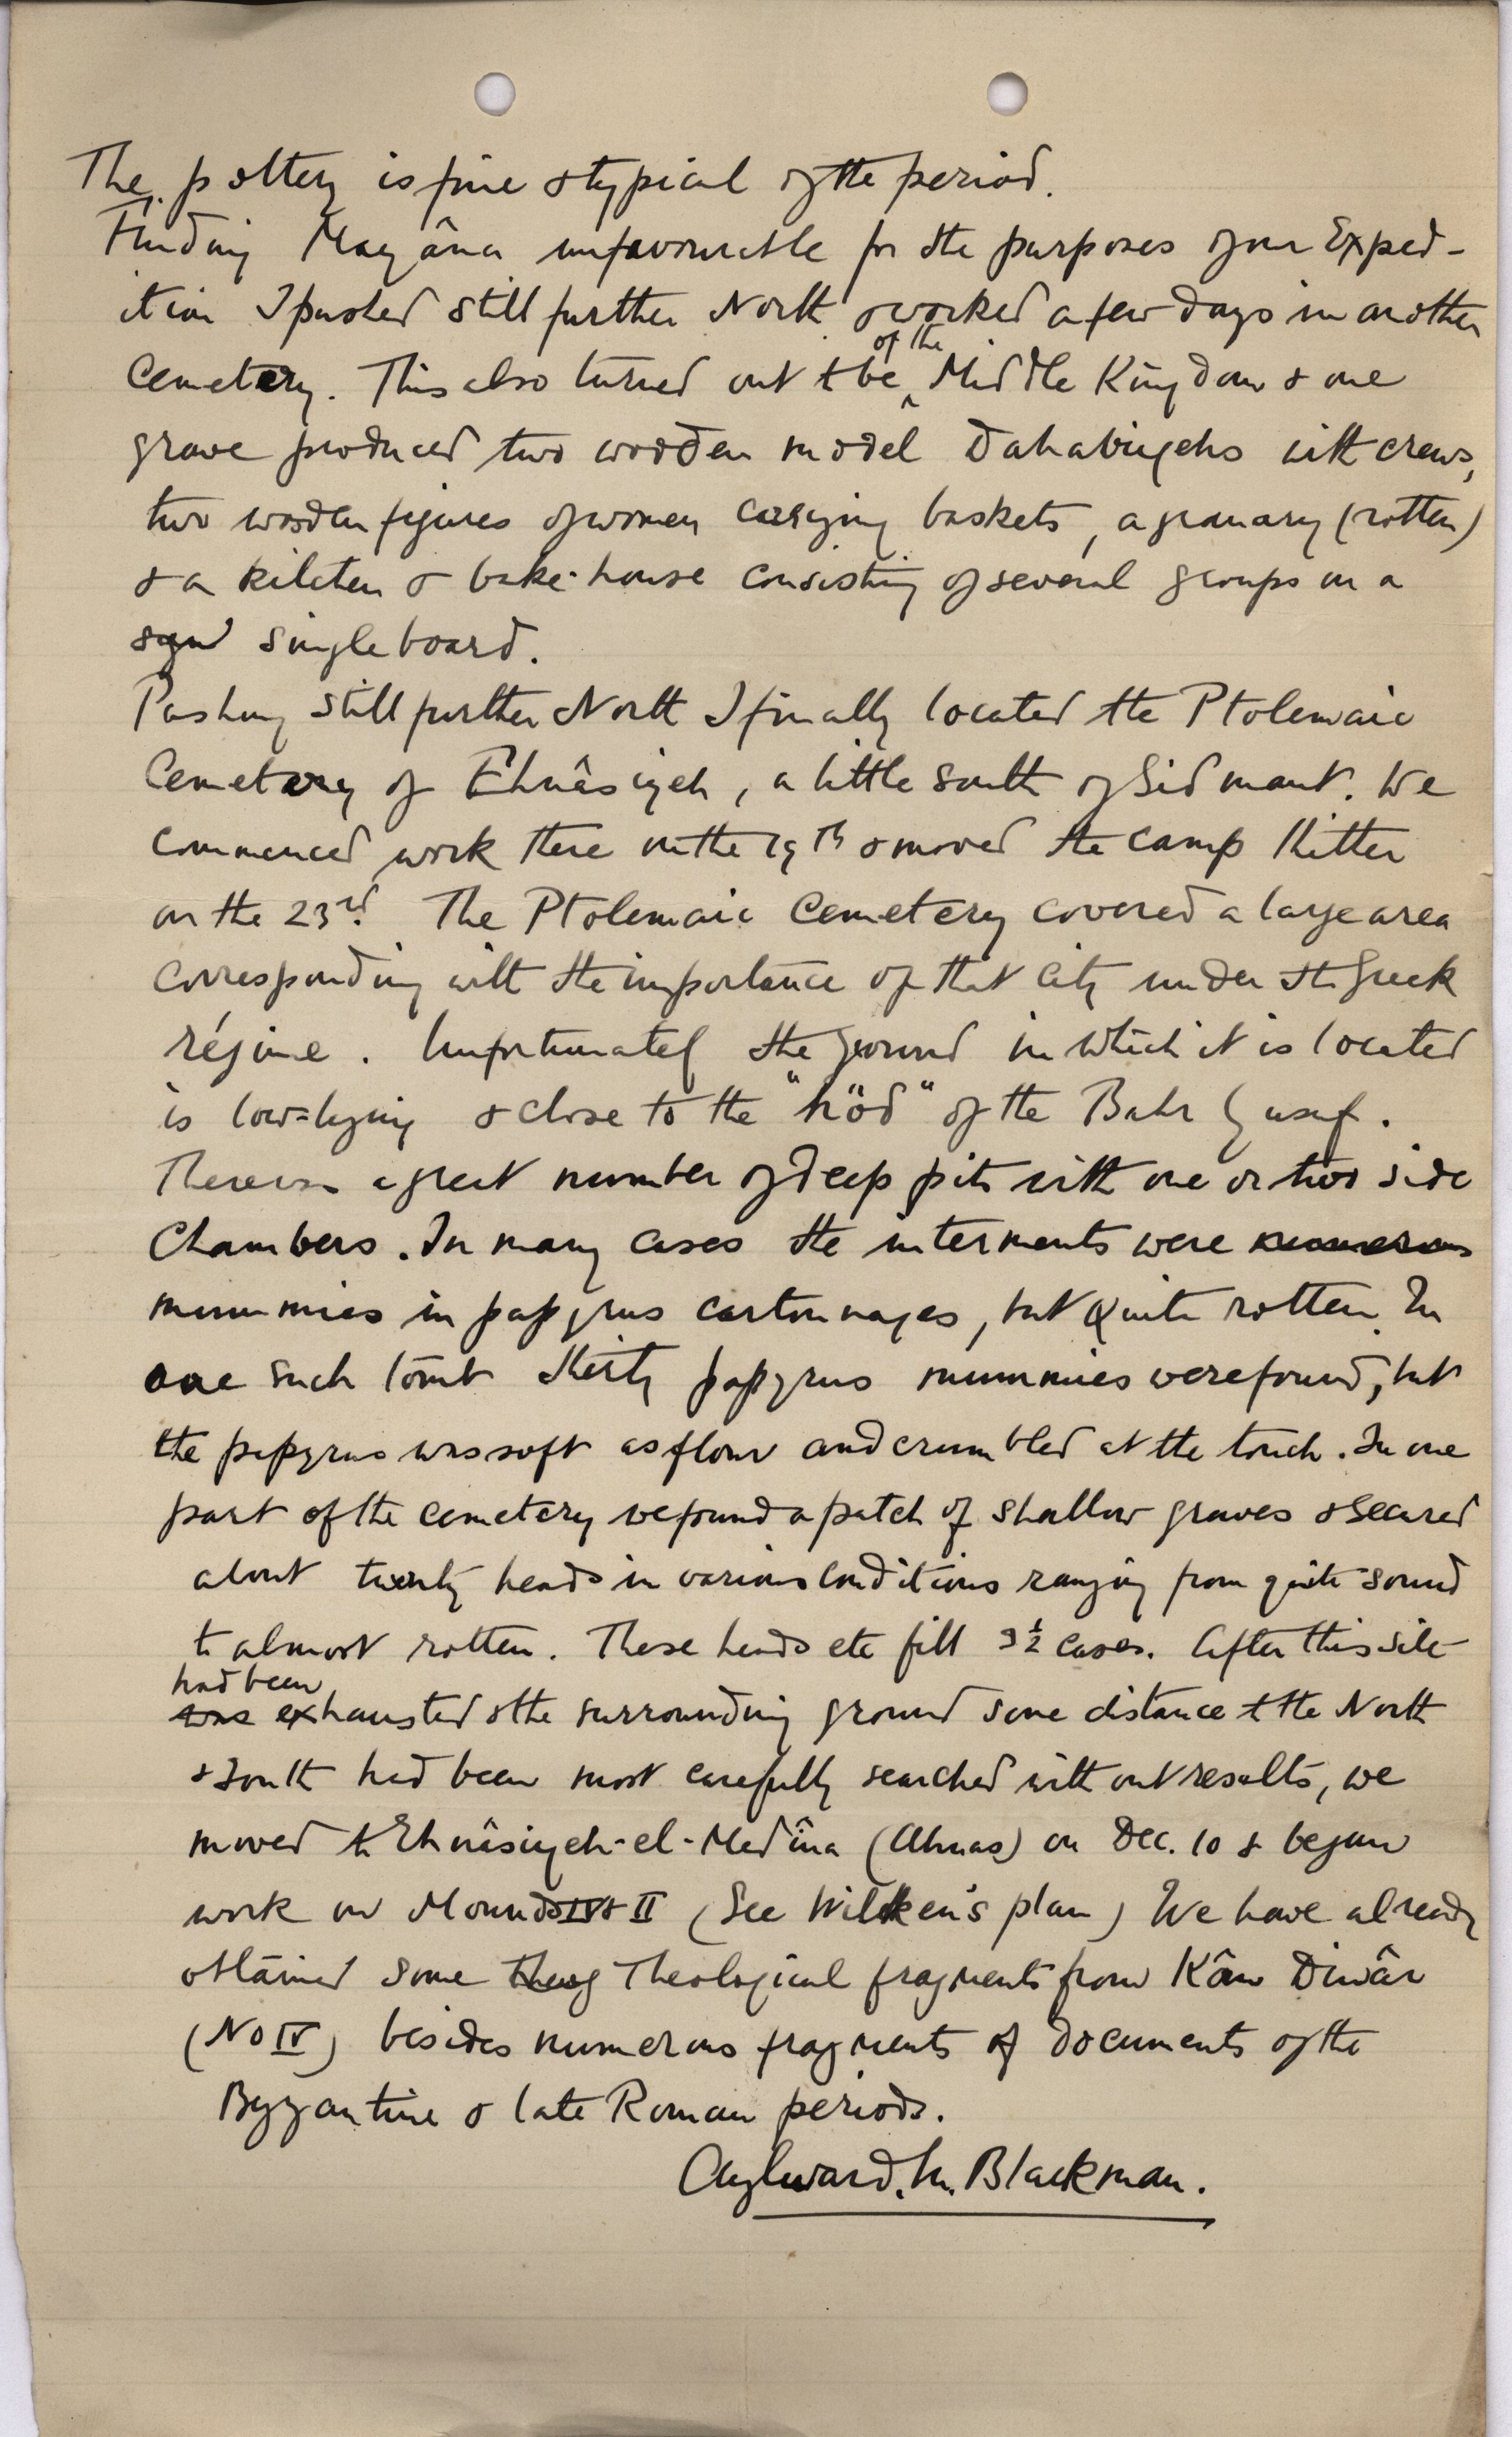 The pottery is fine & typical of the period.
Finding Mayâna unfavourable for the purposes of our Exped-
ition I pushed still further North & worked a few days in another
Cemetery. This also turned out to be of the Middle Kingdom & one
grave produced two wooden model Dahabiyehs with crews,
two wooden figures of women carrying baskets, a granary (rotten)
& a kitchen & bake-house consisting of several groups on a
single board.
Pushing still further North I finally located the Ptolemaic
Cemetery of Ehnâsiyeh, a little south of Sidmant. We
commenced work there on the 19th & moved the camp thither
on the 23rd. The Ptolemaic Cemetery covered a large area
corresponding with the importance of that city under the Greek
régime. Unfortunately the ground in which it is located
is low-lying & close to the "höd" of the Bahr Yusuf.
There was a great number of deep pits with one or two side
Chambers. In many cases the interments were numerous
mummies in papyrus cartonnages, but quite rotten. In
one such tomb thirty papyrus mummies were found, but
the papyrus was soft as flour and crumbled at the touch. In one
part of the cemetery we found a patch of shallow graves & secured
about twenty heads in various conditions ranging from quite sound
to almost rotten. These heads etc fill 3½ cases. After this site
had been
was exhausted & the surrounding ground some distance to the North
& South had been most carefully searched without results, we
moved to Ehnâsiyeh-el-Medîna (Ahnas) on Dec. 10 & began
work on Mounds IV & II (See Wilcken's plan) We have already
obtained some Theological fragments from Kôm Dinâr
(No IV) besides numerous fragments of documents of the
Byzantine & late Roman periods.
Aylward. M. Blackman.